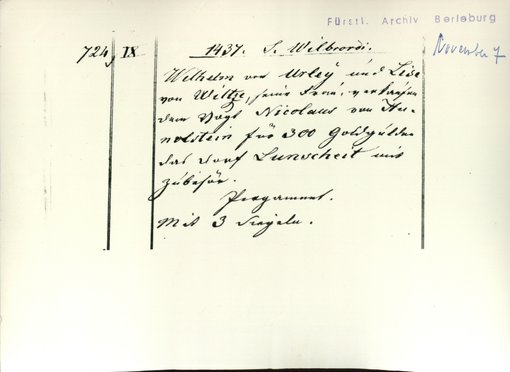 Fürstl. Archiv Berleburg
November 7
724, IX
1437. S. Wilbrordi.
Wilhelm von Urley und Lise
von Wiltze, seine Frau, verkaufen
dem Vogt Nicolaus von Hu-
nolstein für 300 Goldgülden
das Dorf Lunscheit mit
Zubehör.
Pergament.
Mit 3 Siegeln.